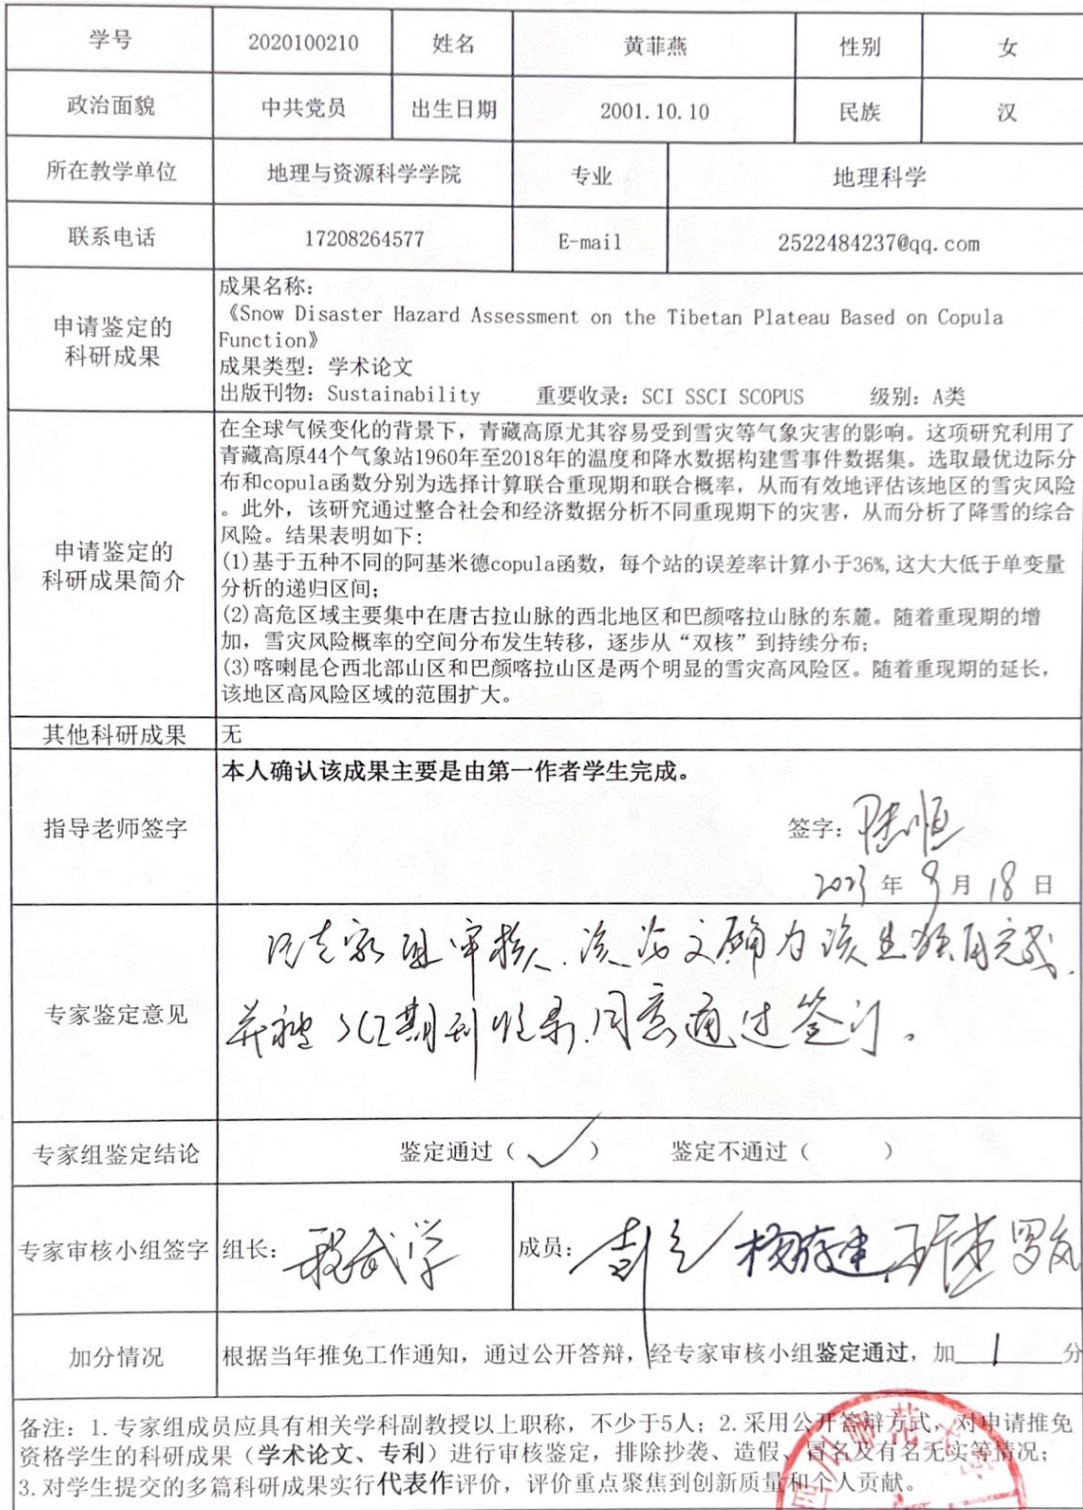 学号 2020100210 姓名 黄菲燕 性别 女
政治面貌 中共党员 出生日期 2001.10.10 民族 汉
所在教学单位 地理与资源科学学院 专业 地理科学
联系电话 17208264577 E-mail 2522484237@qq.com
申请鉴定的
科研成果
成果名称:
《Snow Disaster Hazard Assessment on the Tibetan Plateau Based on Copula
Function》
成果类型: 学术论文
出版刊物: Sustainability 重要收录: SCI SSCI SCOPUS 级别: A类
申请鉴定的
科研成果简介
在全球气候变化的背景下，青藏高原尤其容易受到雪灾等气象灾害的影响。这项研究利用了
青藏高原44个气象站1960年至2018年的温度和降水数据构建雪事件数据集。选取最优边际分
布和copula函数分别为选择计算联合重现期和联合概率，从而有效地评估该地区的雪灾风险
。此外，该研究通过整合社会和经济数据分析不同重现期下的灾害，从而分析了降雪的综合
风险。结果表明如下:
(1)基于五种不同的阿基米德copula函数，每个站的误差率计算小于36%,这大大低于单变量
分析的递归区间;
(2)高危区域主要集中在唐古拉山脉的西北地区和巴颜喀拉山脉的东麓。随着重现期的增
加，雪灾风险概率的空间分布发生转移，逐步从“双核”到持续分布;
(3)喀喇昆仑西北部山区和巴颜喀拉山区是两个明显的雪灾高风险区。随着重现期的延长，
该地区高风险区域的范围扩大。
其他科研成果 无
指导老师签字
本人确认该成果主要是由第一作者学生完成。
签字: 陆恒
2023 年 9 月 18 日
专家鉴定意见
经专家组审核,该论文确为该生独自完成,
并被SCI期刊收录,同意通过鉴订。
专家组鉴定结论 鉴定通过( ✓ ) 鉴定不通过( )
专家审核小组签字 组长: 程武学 成员: 杨存建 罗岚
加分情况 根据当年推免工作通知，通过公开答辩，经专家审核小组鉴定通过，加 1 分
备注: 1.专家组成员应具有相关学科副教授以上职称，不少于5人; 2.采用公开答辩方式，对申请推免
资格学生的科研成果（学术论文、专利）进行审核鉴定，排除抄袭、造假、冒名及有名无实等情况;
3.对学生提交的多篇科研成果实行代表作评价，评价重点聚焦到创新质量和个人贡献。